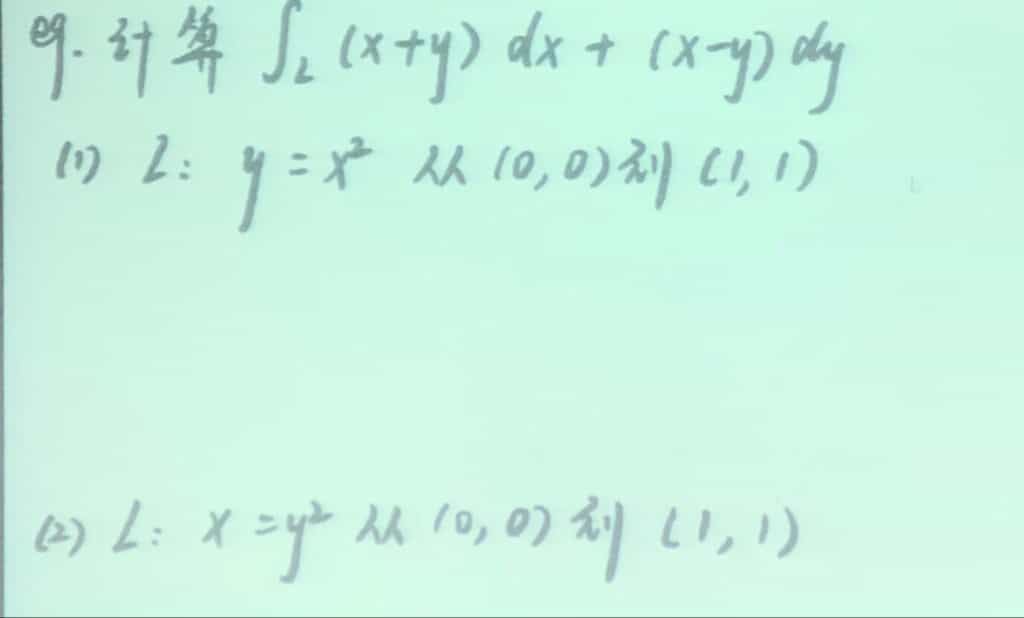 eg. 计算 ∫_L (x+y) dx + (x-y) dy
(1) L: y = x² 从 (0,0) 到 (1,1)
(2) L: x = y² 从 (0,0) 到 (1,1)